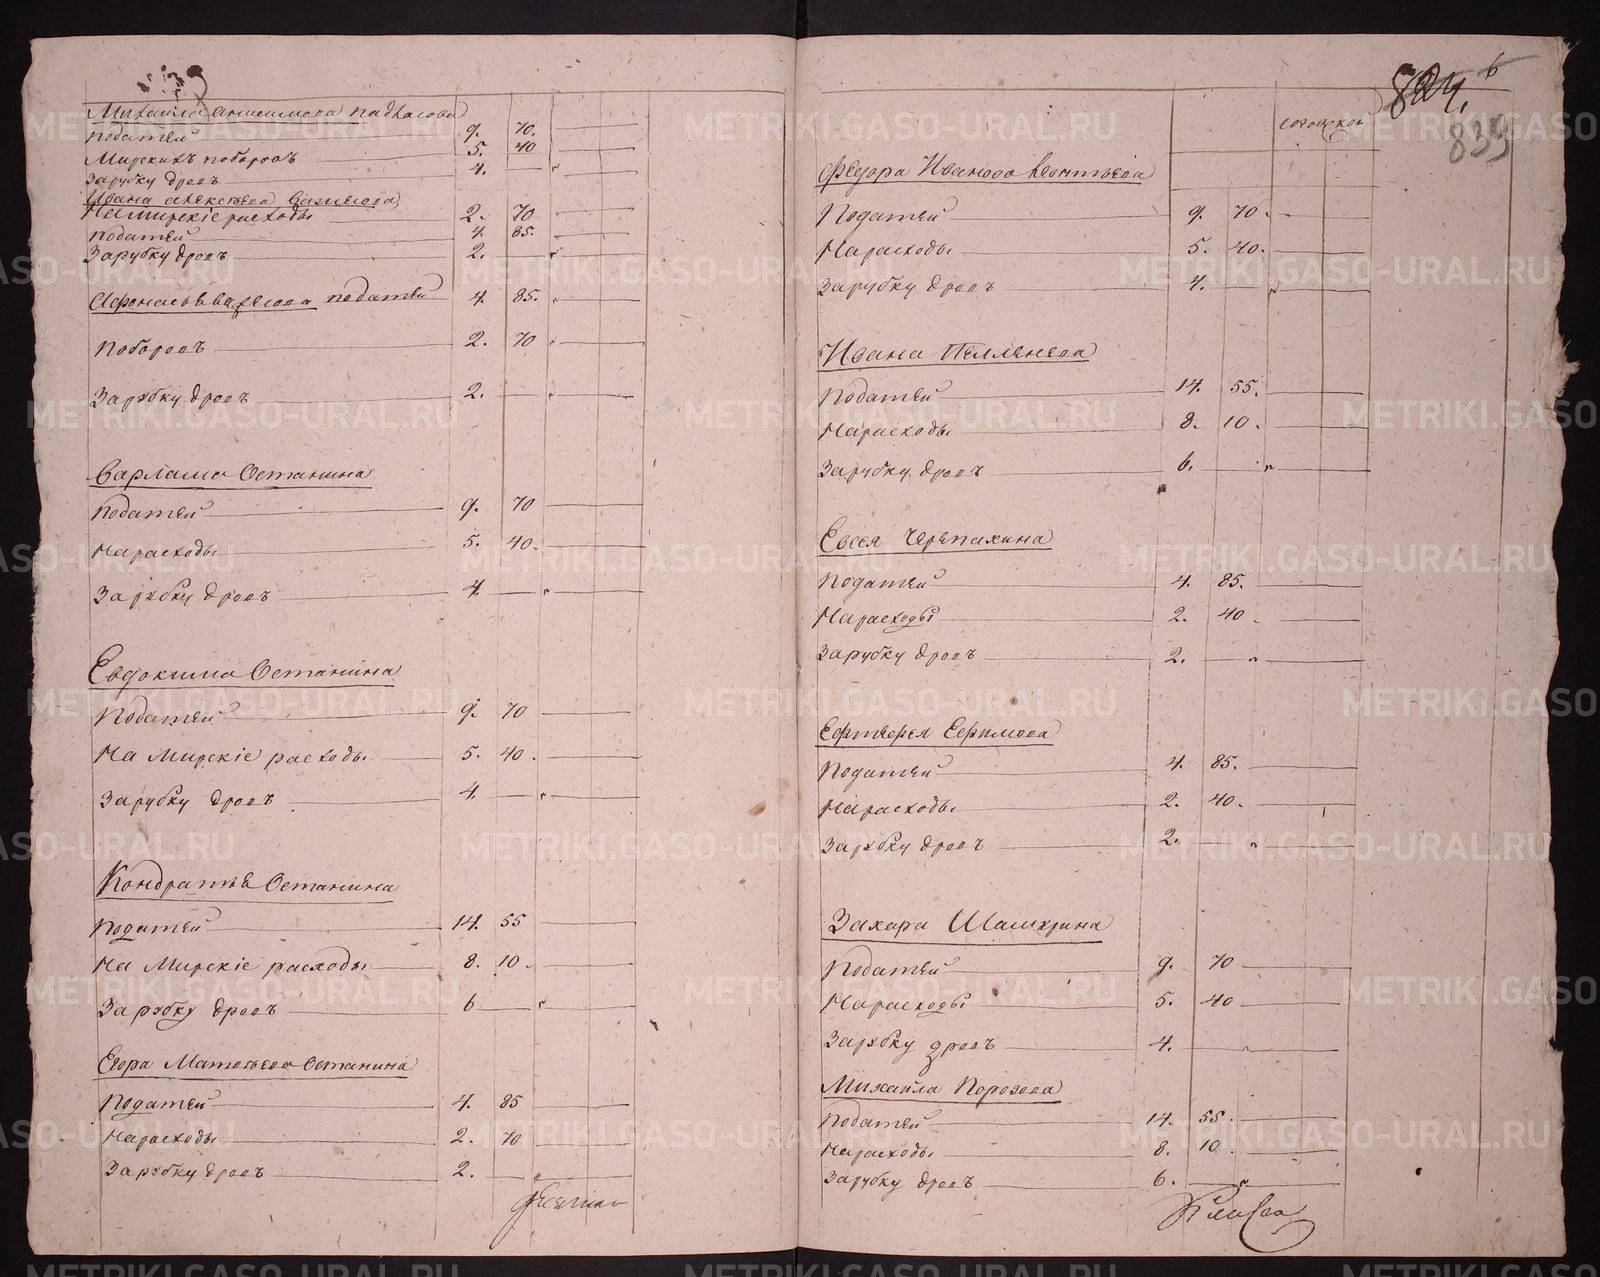 Михайла Анисимова
податей 9. 70.
Мирскихъ поборовъ 5. 40
Зарубку дровъ 4.
Ивана Алексѣева
На мирскіе расходы 2. 70
податей 4. 85.
Зарубку дровъ 2.
податей 4. 85.
Поборовъ 2. 70
Зарубку дровъ 2.
Варлама Останина
податей 9. 70
На расходы 5. 40.
Зарубку дровъ 4.
Евдокима Останина
податей 9. 70
На Мирскіе расходы 5. 40.
Зарубку дровъ 4.
Кондратья Останина
податей 14. 55
На Мирскіе расходы 8. 10.
Зарубку дровъ 6
Егора Матвѣева Останина
податей 4. 85
На расходы 2. 70
Зарубку дровъ 2.
824.
6
839
Федора Иванова Леонтьева
Податей 9. 70.
На расходы 5. 40.
Зарубку дровъ 4.
Ивана
Податей 14. 55.
На расходы 8. 10.
Зарубку дровъ 6.
Евсея Черепахина
Податей 4. 85.
На расходы 2. 40.
Зарубку дровъ 2.
Ефимова
Податей 4. 85.
На расходы 2. 40.
Зарубку дровъ 2.
Захара Шамхрина
Податей 9. 70
На расходы 5. 40
Зарубку дровъ 4.
Михайла Порозова
Податей 14. 55.
На расходы 8. 10.
Зарубку дровъ 6.
METRIKI.GASO-URAL.RU